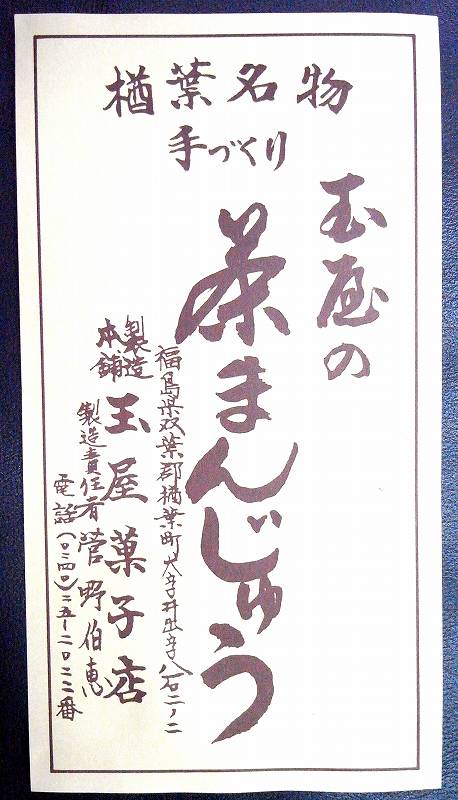 楢葉名物
手づくり
玉屋の
茶まんじゅう
福島県双葉郡楢葉町大字井出字八石二ノ二
製造
本舗
玉屋菓子店
製造責任者菅野伯恵
電話(〇二四〇)二五ー二〇二二番